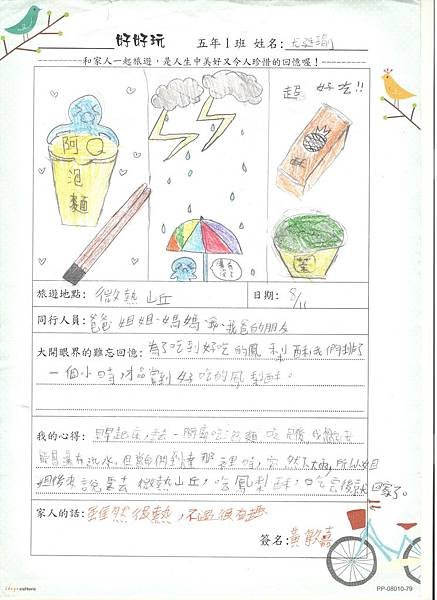 好好玩 五年1班 姓名:
和家人一起旅遊,是人生中美好又令人珍惜的回憶喔!
阿Q
泡
麵
超 好吃!!
酥
菜
旅遊地點: 微熱山丘
日期: 8/11
同行人員: 爸爸 姐姐、媽媽 我、我爸的朋友
大開眼界的難忘回憶: 為了吃到好吃的鳳梨酥我們排了
一個小時,才品嘗到好吃的鳳梨酥。
我的心得: 早起床,去阿Q 吃泡麵 吃
瀑布 玩水,但當我們到達那裡時,突然下大雨,所以姐
姐後來說要去 微熱山丘,吃鳳梨酥,吃完後就回家了。
家人的話: 雖然很熱,不過很有趣
簽名: 黃敏嘉
culture
PP-08010-79